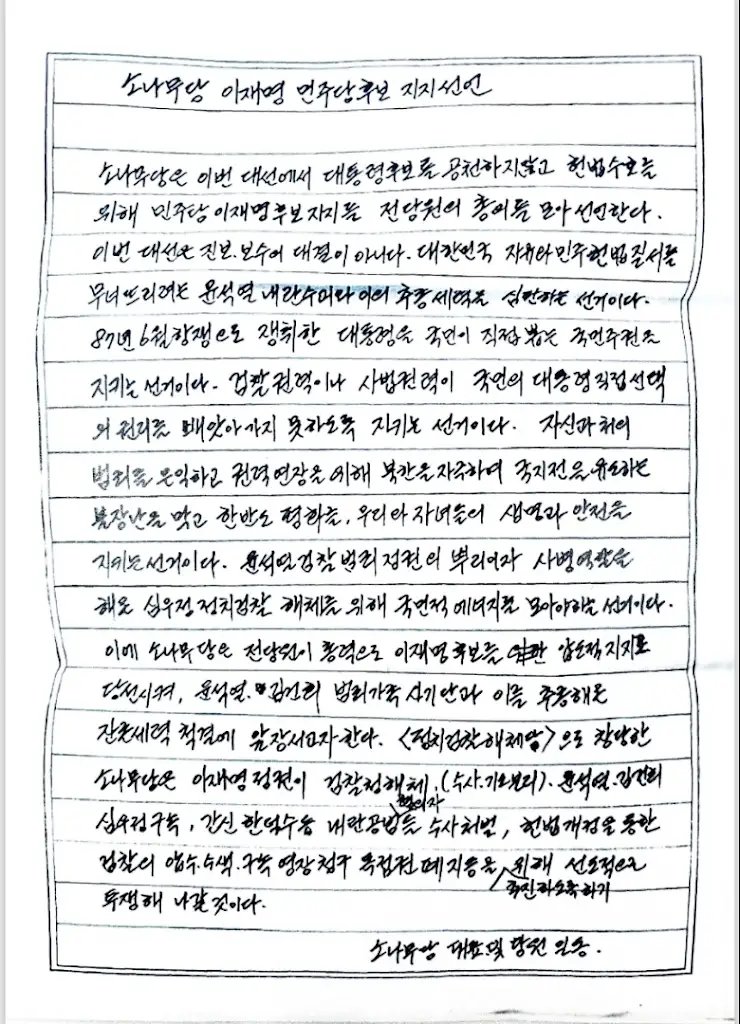 소나무당 이재명 민주당후보 지지선언
소나무당은 이번 대선에서 대통령후보를 공천하지않고 헌법수호를
위해 민주당 이재명후보 지지를 전당원의 총의를 모아 선언한다.
이번 대선은 진보.보수의 대결이 아니다. 대한민국 자유와 민주헌법질서를
무너뜨리려는 윤석열 내란수괴와 이의 추종세력을 심판하는 선거이다.
87년 6월항쟁으로 쟁취한 대통령을 국민이 직접 뽑는 국민주권을
지키는 선거이다. 검찰권력이나 사법권력이 국민의 대통령직접선택
의 권리를 빼앗아가지 못하도록 지키는 선거이다. 자신과 처의
범죄를 은익하고 권력연장을 위해 북한을 자극하여 국지전을 유도하는
불장난을 막고 한반도 평화를, 우리와 자녀들의 생명과 안전을
지키는 선거이다. 윤석열검찰범죄정권의 뿌리이자 사병역할을
해온 심우정 정치검찰 해체를 위해 국민적 에너지를 모아야하는 선거이다.
이에 소나무당은 전당원이 총력으로 이재명후보를 압도적지지로
당선시켜, 윤석열.김건희 범죄가족 사기안과 이를 추종해온
잔존세력 척결에 앞장서고자한다. <정치검찰해체당>으로 창당한
소나무당은 이재명정권이 검찰청해체.(수사.기소분리).윤석열.김건희
심우정구속, 간신 한덕수등 내란공범혐의자들 수사처벌, 헌법개정을 통한
검찰의 압수.수색.구속 영장청구 독점권 폐지등을 추진하도록하기 위해 선도적으로
투쟁해 나갈 것이다.
소나무당 대표및 당원 일동.